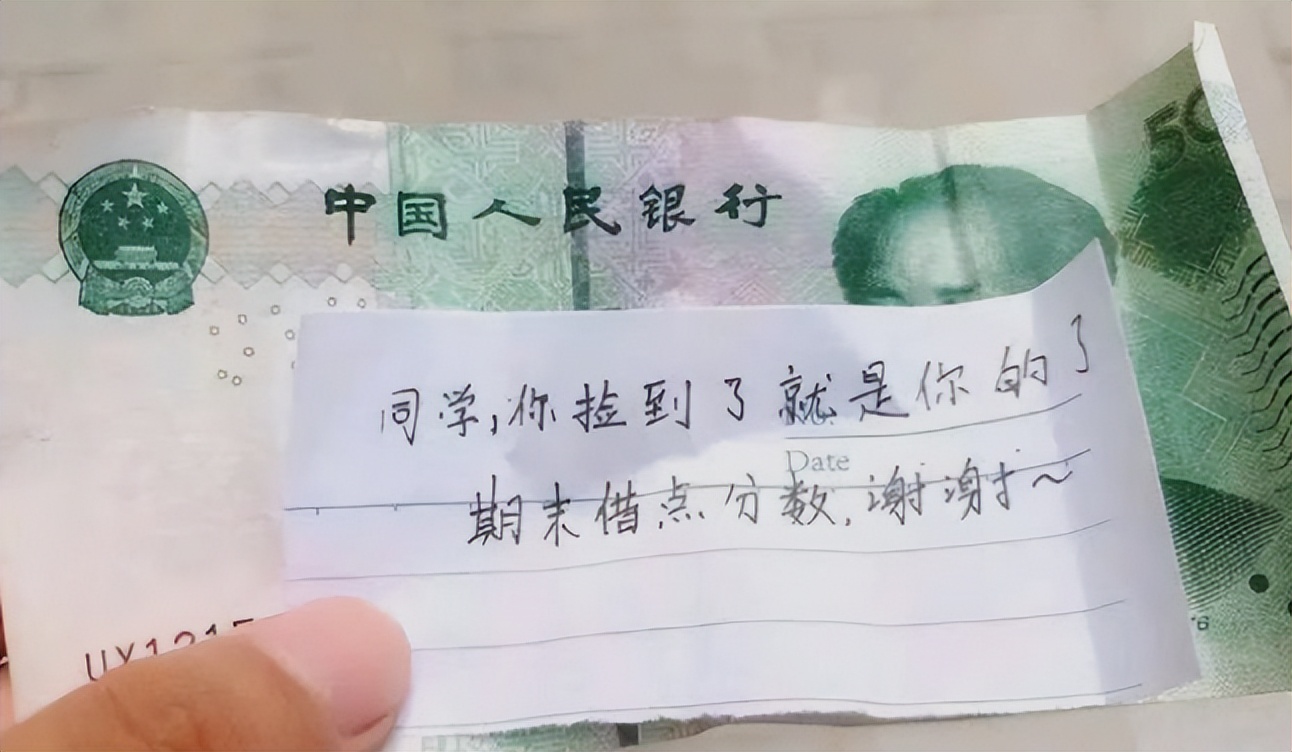 中国人民银行
50
同学,你捡到了就是你的了
No.
Date
期末借点分数,谢谢~
UX1215
6